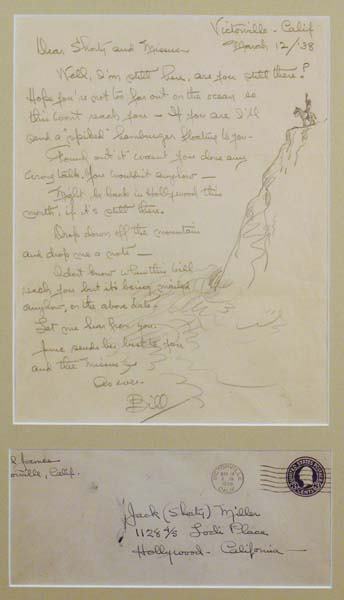 Victorville - Calif
March 12/'38
Dear Shorty and Missus
Well, I'm still here, are you still there?
Hope you're not too far out on the ocean so
this won't reach you - If you are I'll
send a "spiked" hamburger floating to you -
Found out it wasn't you done any
wrong talk. You wouldn't anyhow -
Might be back in Hollywood this
month, if it's still there.
Drop down off the mountain
and drop me a note -
I don't know when this will
reach you but it's being mailed
anyhow, on the above date.
Let me hear from you.
June sends her best to you
and the missus
As ever -
Bill
James
orville, Calif.
VICTORVILLE
CALIF
Jack (Shorty) Miller
1128 4/5 Lodi Place
Hollywood - California -